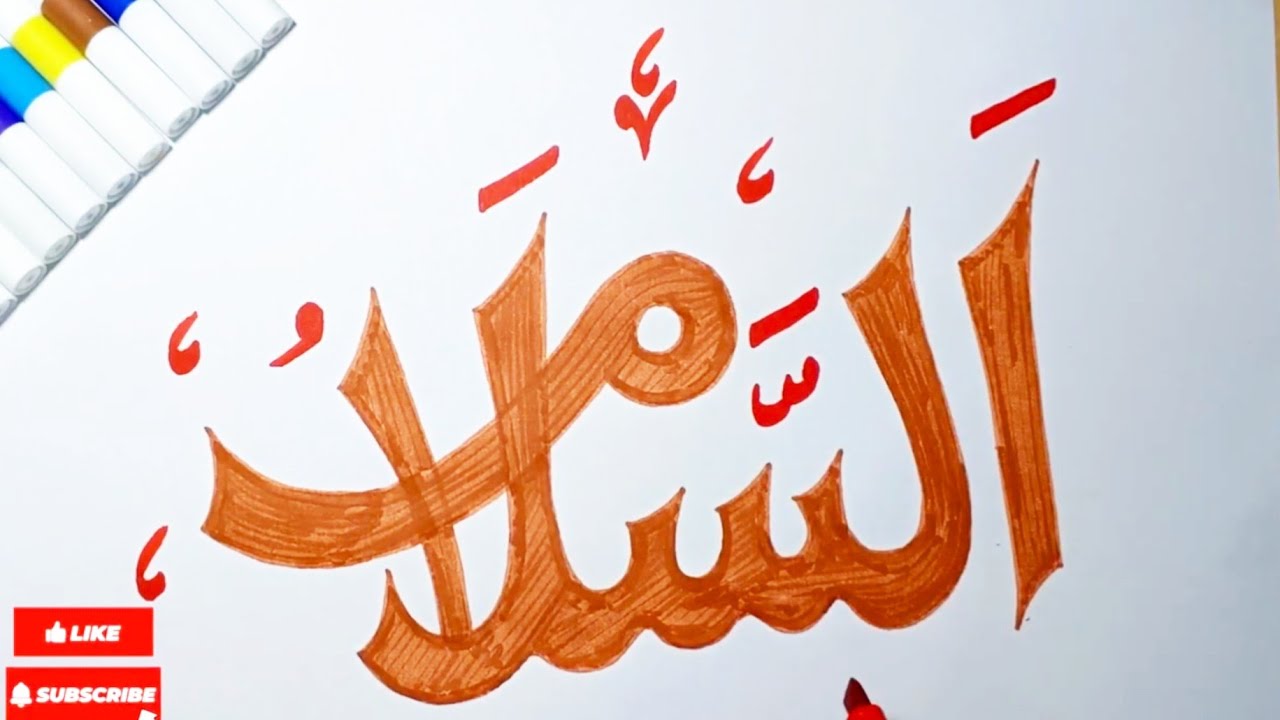 اَلسَّلَامُ
LIKE
SUBSCRIBE